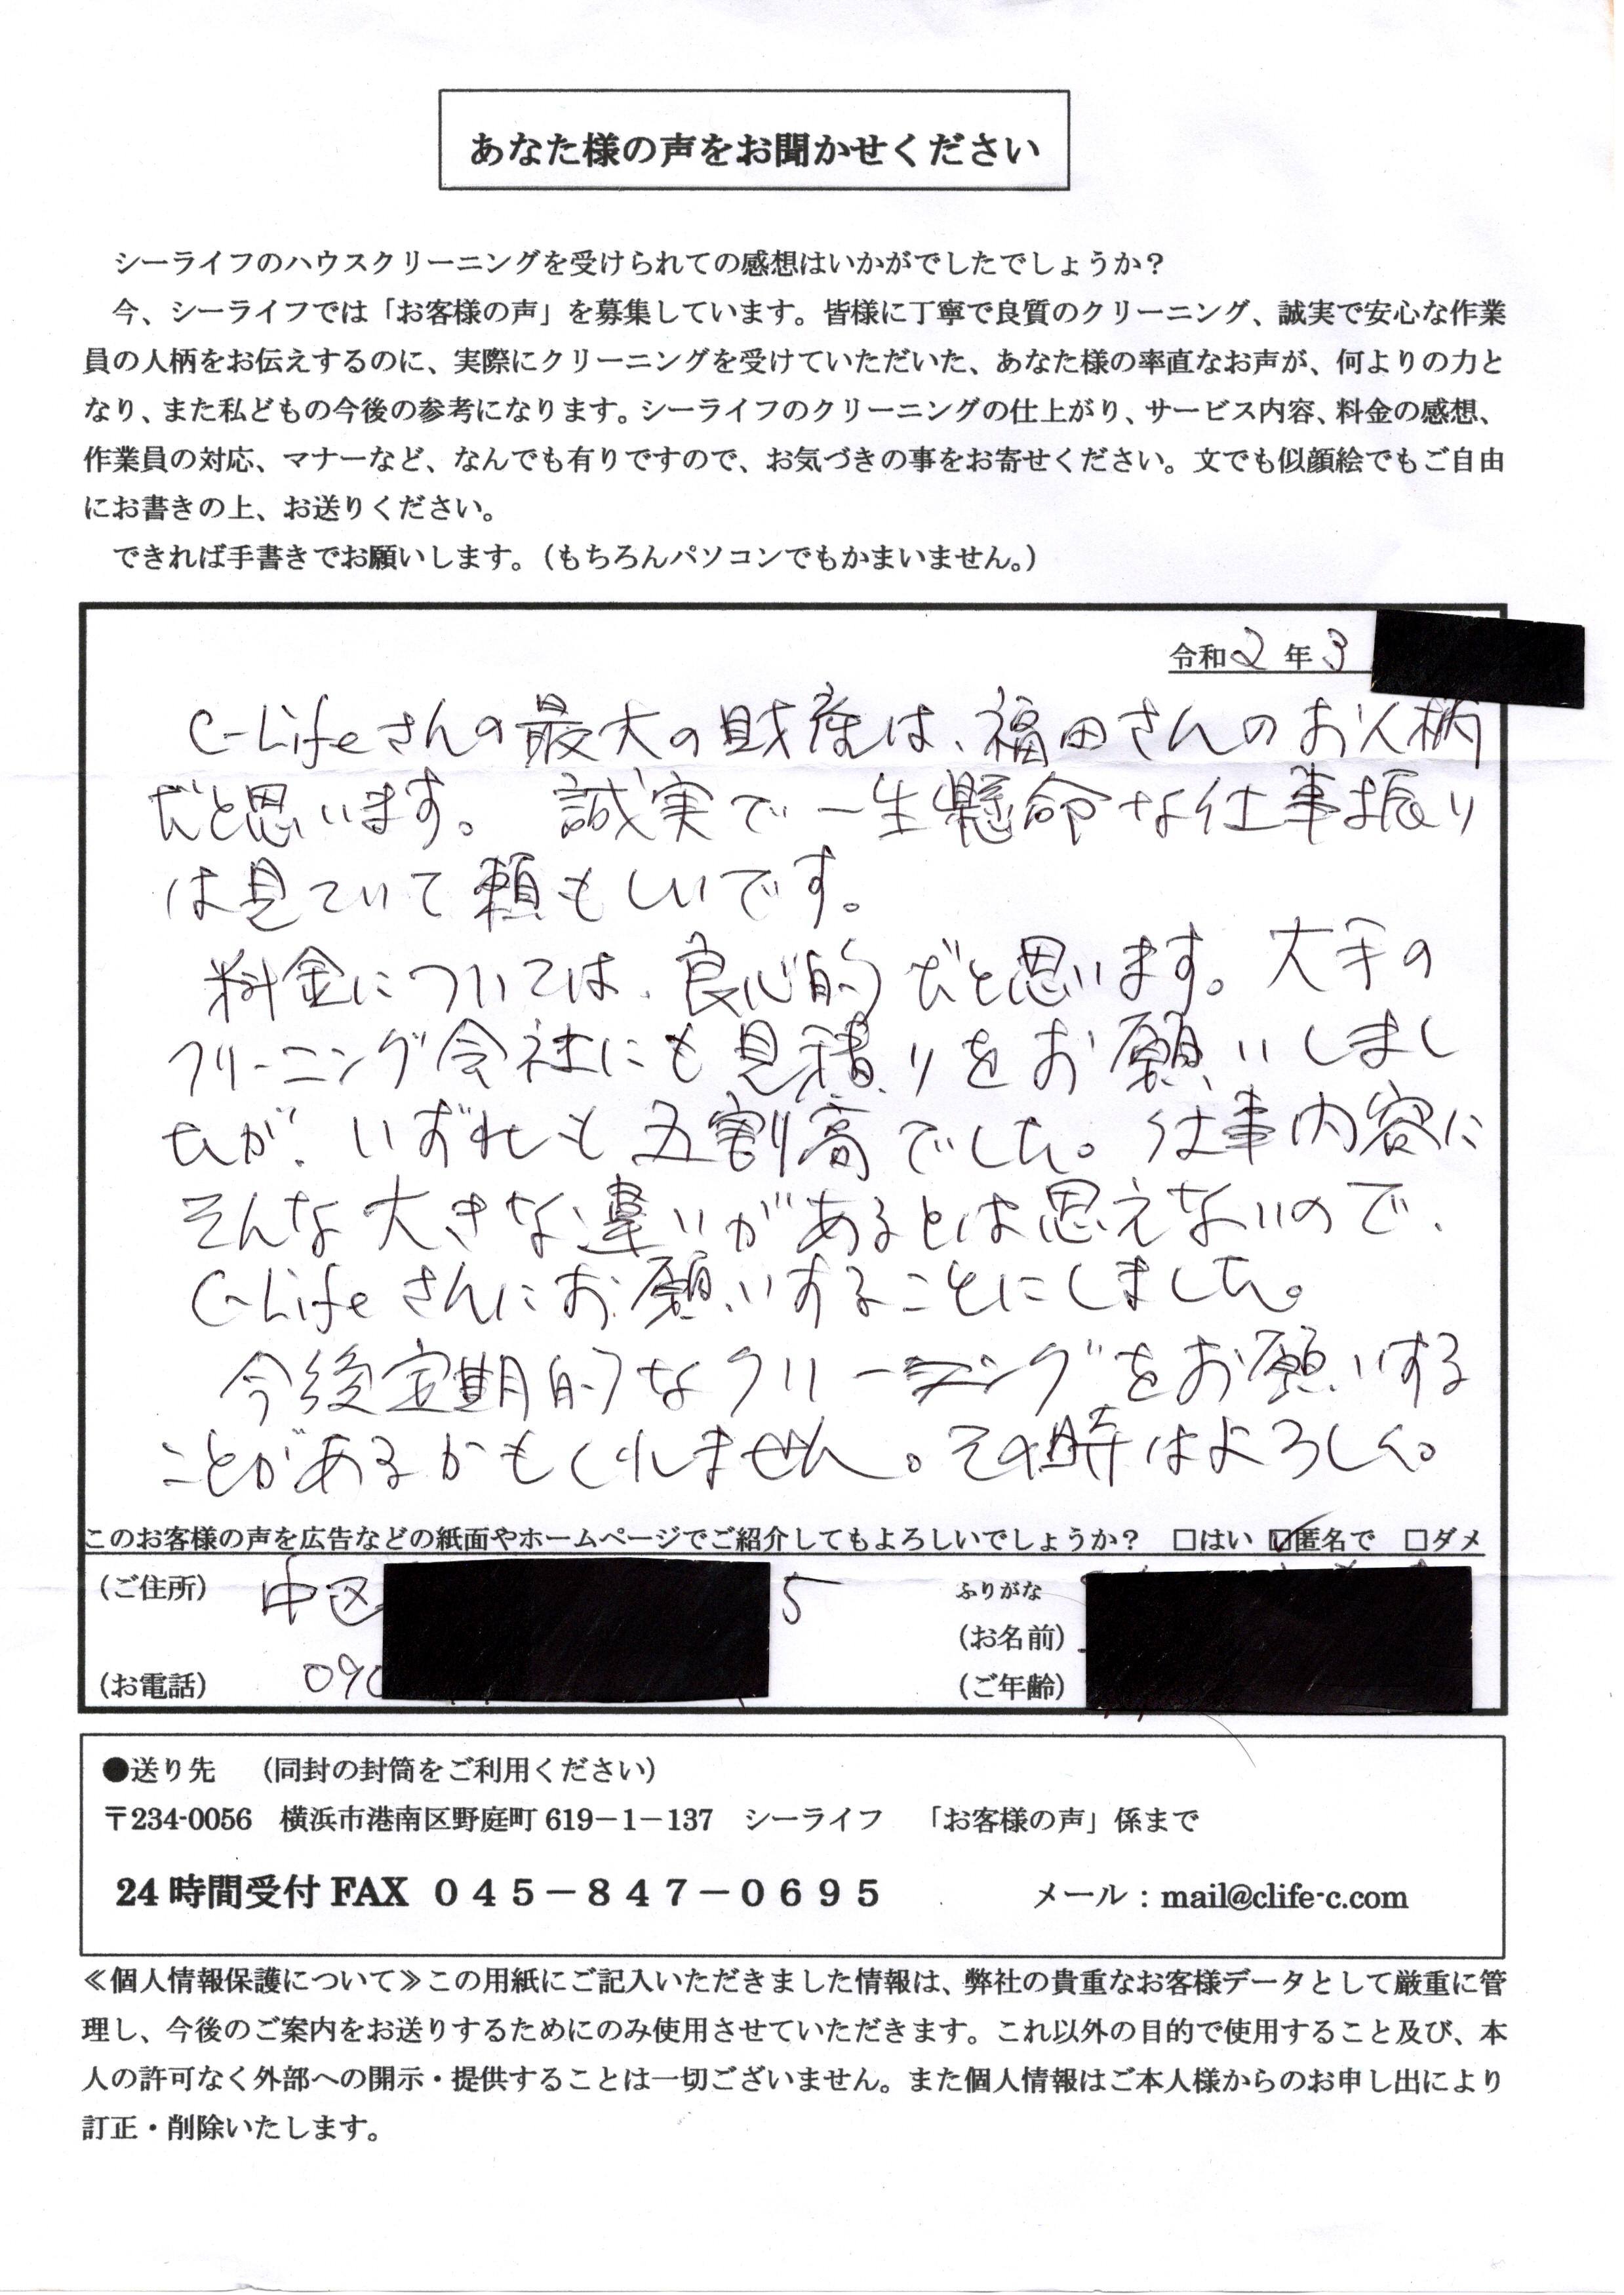 あなた様の声をお聞かせください
シーライフのハウスクリーニングを受けられての感想はいかがでしたでしょうか？
今、シーライフでは「お客様の声」を募集しています。皆様に丁寧で良質のクリーニング、誠実で安心な作業
員の人柄をお伝えするのに、実際にクリーニングを受けていただいた、あなた様の率直なお声が、何よりの力と
なり、また私どもの今後の参考になります。シーライフのクリーニングの仕上がり、サービス内容、料金の感想、
作業員の対応、マナーなど、なんでも有りですので、お気づきの事をお寄せください。文でも似顔絵でもご自由
にお書きの上、お送りください。
できれば手書きでお願いします。（もちろんパソコンでもかまいません。）
令和2年3
C-Lifeさんの最大の財産は、福田さんのお人柄
だと思います。誠実で一生懸命な仕事振り
は見ていて頼もしいです。
料金については、良心的だと思います。大手の
クリーニング会社にも見積りをお願いしまし
たが、いずれも五割高でした。仕事内容に
そんな大きな違いがあるとは思えないので、
C-Lifeさんにお願いすることにしました。
今後定期的なクリーニングをお願いする
ことがあるかもしれません。その時はよろしく。
このお客様の声を広告などの紙面やホームページでご紹介してもよろしいでしょうか？ □はい ☑匿名で □ダメ
（ご住所） 中区 5 ふりがな
（お名前）
（お電話） 090 （ご年齢）
●送り先 （同封の封筒をご利用ください）
〒234-0056 横浜市港南区野庭町619－1－137 シーライフ 「お客様の声」係まで
24時間受付FAX ０４５－８４７－０６９５ メール：mail@clife-c.com
≪個人情報保護について≫この用紙にご記入いただきました情報は、弊社の貴重なお客様データとして厳重に管
理し、今後のご案内をお送りするためにのみ使用させていただきます。これ以外の目的で使用すること及び、本
人の許可なく外部への開示・提供することは一切ございません。また個人情報はご本人様からのお申し出により
訂正・削除いたします。